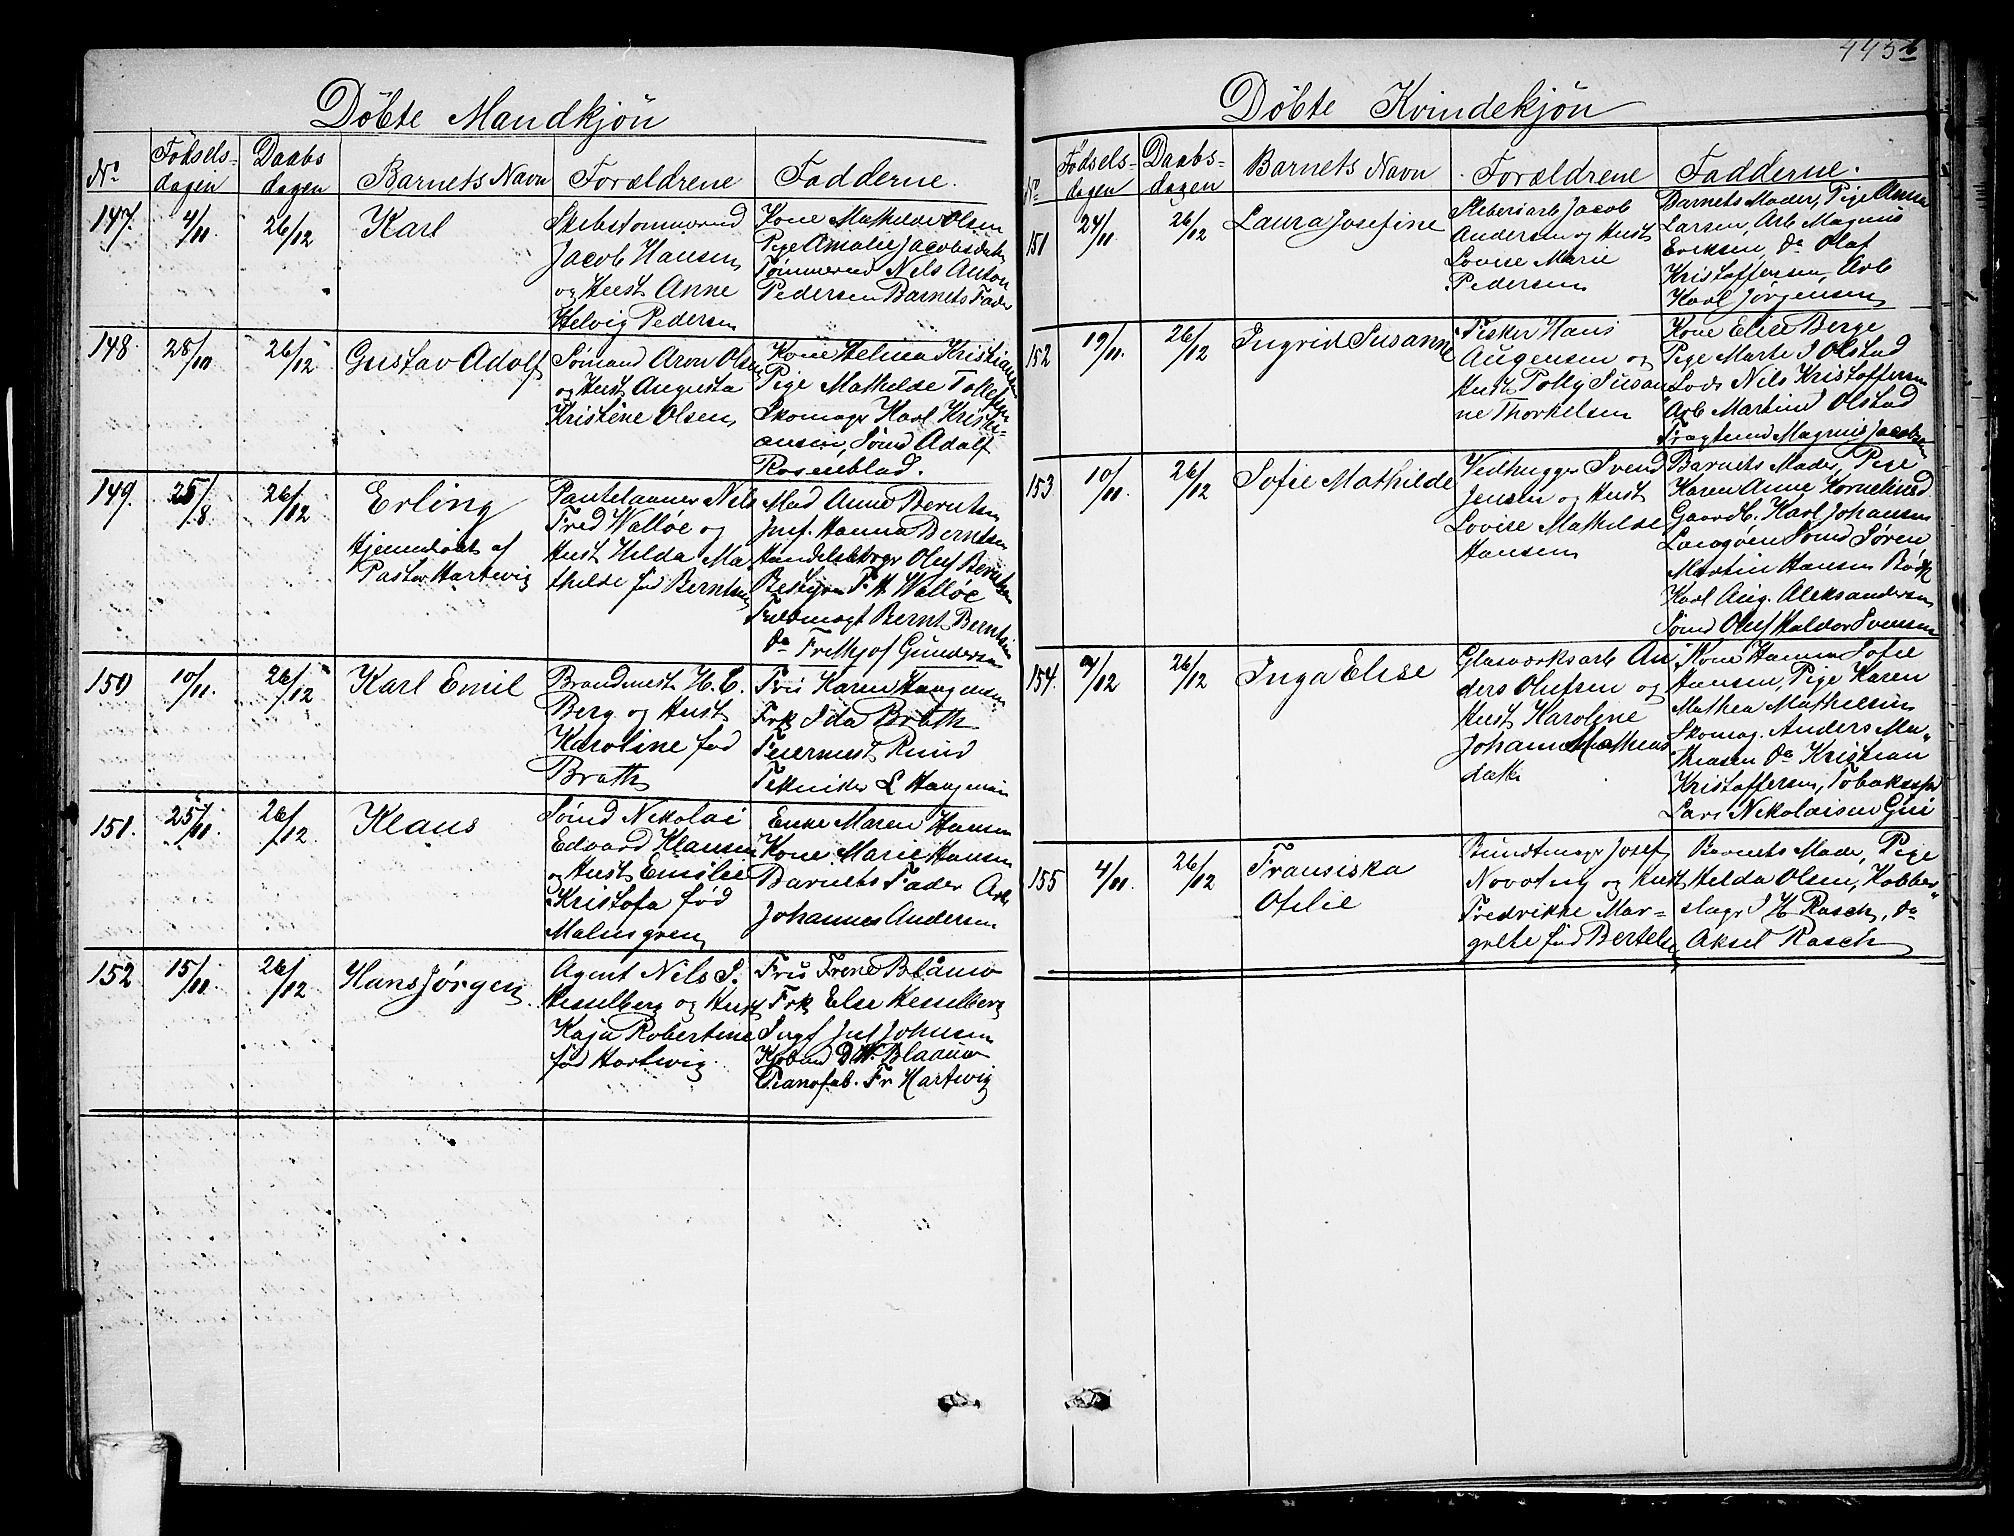 Döbte Mandkjön
No
Födsels-
dagen
Daabs
dagen
Barnets Navn
Forældrene
Fadderne.
147.
4/11
26/12
Karl
Skibstømmermd
Jacob Hansen
og Hust Anne
Helvig Pedersen
Kone Mathilde Olsen
Pige Amalie Jacobsdatr
Tömmermd Nils Anton
Pedersen Barnets Fader
148.
28/10
26/12
Gustav Adolf
Sömand Aron Olsen
og Hust Augusta
Kristine Olsen
Kone Helina Kristiansen
Pige Mathilde Tollefsen
Skomagr Karl Kristi-
ansen, Sömd Adolf
Rosenblad.
149.
25/8
26/12
Erling
Hjemmedøbt af
Pastor Hartwig
Pantelaaner Nils
Fred Walløe og
Hust Hilda Ma
thilde fød Berntsen
Mad Anne Berntsen
Jnf. Hanna Berntsen
Handelsbetyr Oluf Berntsen
Bestyrer F. H Walløe
Fuldmægt Bernt Berntsen
do Frithjof Gundersen
150
10/11.
26/12
Karl Emil
Brandmest H. C.
Berg og Hust
Karoline fød
Brath
Fru Karen Haagensen
Frk Ida Brath
Fuermest Rund
Tekniker L Haagensen
151.
25/11.
26/12
Klaus
Sömd Nikolai
Edvard Klausen
og Hust Emilie
Kristofa fød
Malmgren
Enke Maren Hansen
Kone Marie Hansen
Barnets Fader Arb
Johannes Andersen
152
15/11
26/12
Hans Jörgen
Agent Nils S.
Hesselberg og Hust
Kaja Robertine
fød Hartwig.
Fru Irene Blauw
Frk Else Hesselberg
Sagf Jul Johnsen
Kjøbmd D W. Blaauw
Pianofab. Fr Hartwig
445 b
Döbte Kvindekjön
No
Födsels-
dagen
Daabs-
dagen
Barnets Navn
Forældrene
Fadderne.
151
24/11
26/12
Laura Josefine
Sliberiarb Jacob
Andersen og Hust
Lovise Marie
Pedersen
Barnets Moder, Pige Anna
Larsen, Arb Magnus
Eriksen, do Olaf
Kristoffersen, Arb
Karl Jørgensen
152
19/11.
26/12
Ingrid Susanne
Fisker Hans
Augensen og
Hust Polly Susan
ne Thorkelsen
Kone Elise Berge
Pige Marte I Olstad
Lods Nils Kristoffersen
Arb Martin Olstad
Fragtemd Magnus Jacobsen
153
10/11.
26/12
Sofie Mathilde
Vedhugger Svend
Jensen og Hust
Lovise Mathilde
Hansen
Barnets Moder, Pige
Karen Anne Kornelinsd
Gaardb. Karl Johansen
Sömd Sören
Martin Hansen Bödk
Karl Aug. Aleksandersen
Sömd Oluf Haldor Svensen
154.
7/12
26/12
Inga Elise
Glasværksarb An
ders Olufsen og
Hust Karoline
Johanne Mathias
datter
Kone Hanna Sofie
Hansen, Pige Karen
Mathea Mathiesen
Skomag. Anders Ma„
thiasen do Kristian
Kristoffersen, Tobaksspd
Lars Nikolaisen Gui
155
4/11.
26/12
Fransiska
Ofelie
Bundtmagr Josef
Novotny og Hust
Fredrikke Mar-
grete fød Bertelsen
Barnets Moder, Pige
Hilda Olsen, Kobber„
slagr J H Rasch, do
Aksel Rasch